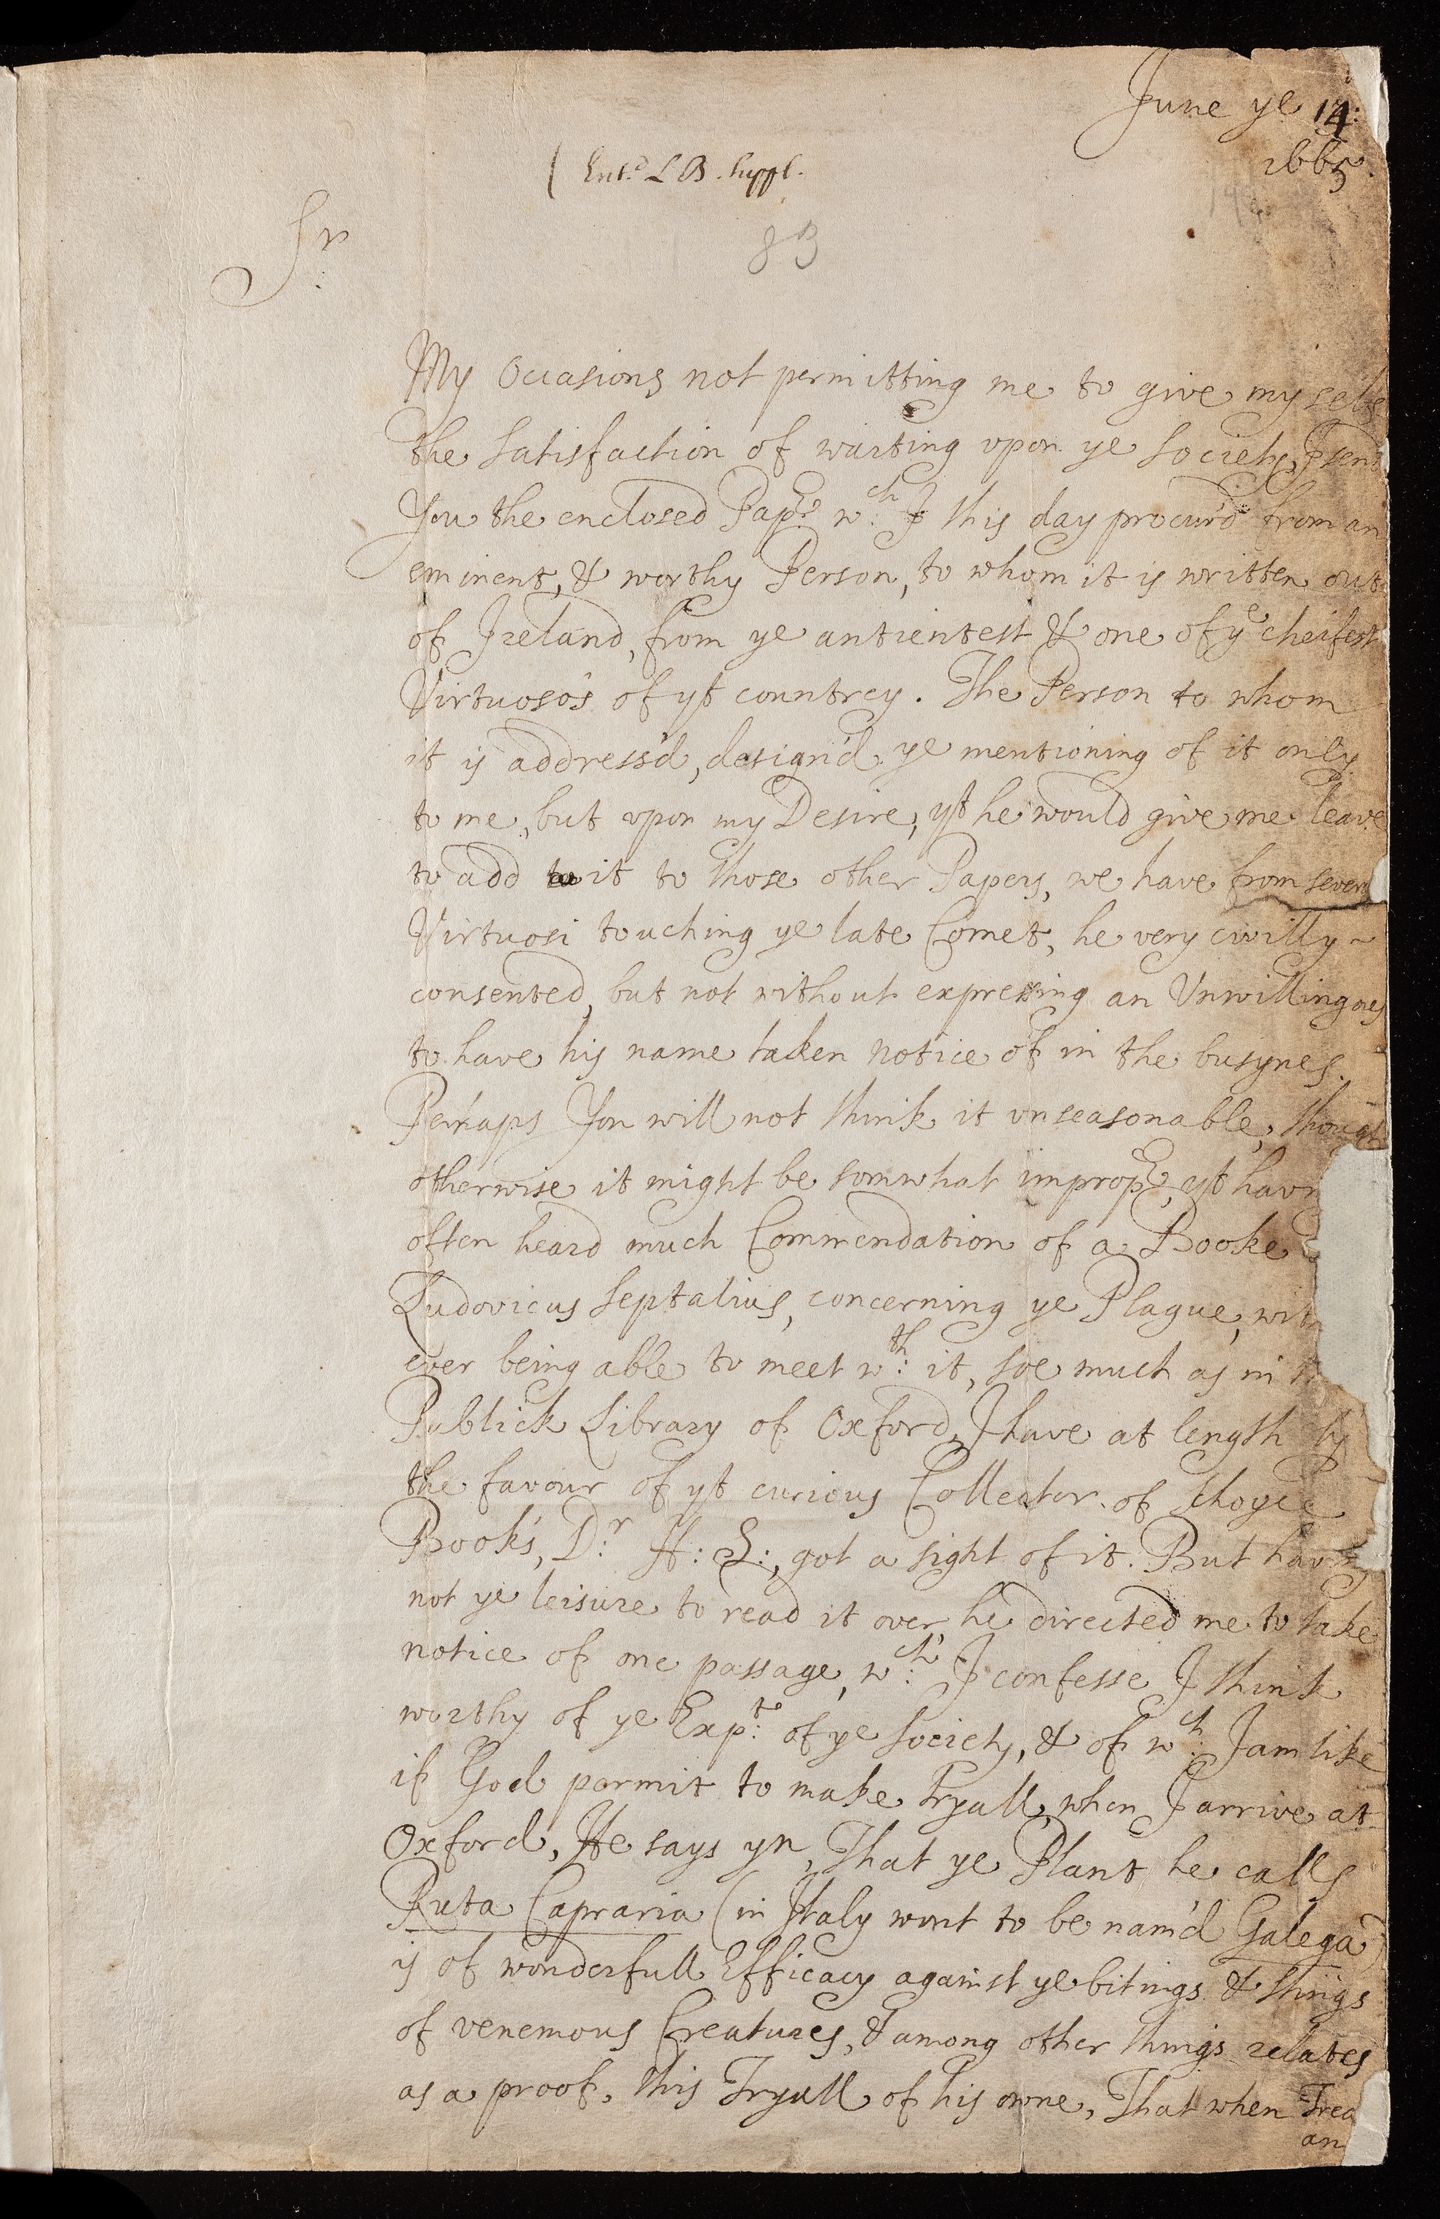 June ye 14:
1665.
(Ent.d L B. Suppl.
83
Sr
My Occasions not permitting me to give my selfe
the Satisfaction of waiting vpon ye Society, I send
You the enclosed Papr. wch. I this day procur'd from an
eminent, & worthy Person, to whom it is written out
of Ireland, from ye antientest & one of ye cheifest
Virtuoso's of yt countrey. The Person to whom
it is address'd, design'd ye mentioning of it only
to me, but vpon my Desire, yt he would give me leave
to add it to those other Papers, we have from sever
Virtuosi touching ye late Comet, he very civilly ~
consented, but not without expressing an Unwillingnes
to have his name taken notice of in the busynes.
Perhaps You will not think it vnseasonable, though
otherwise it might be somwhat impropr, yt havn
often heard much Commendation of a Booke
Ludovicus Septalius, concerning ye Plague, wit
ever being able to meet wth: it, soe much as in t
Publick Library of Oxford, I have at length by
the favour of yt curious Collector of choyce
Book's, Dr: H: S:, got a sight of it. But having
not ye leisure to read it over, he directed me to take
notice of one passage, wch: I confesse I think
worthy of ye Expt: of ye Society, & of wch: I am like
if God permit to make Tryall, when I arrive at
Oxford, He says yn, That ye Plant he calls
Ruta Capraria (in Italy wont to be nam'd Galega)
is of wonderfull Efficacy against ye bitings & stings
of venemous Creatures, & among other things relates
as a proof, this Tryall of his owne, That when Trea
an